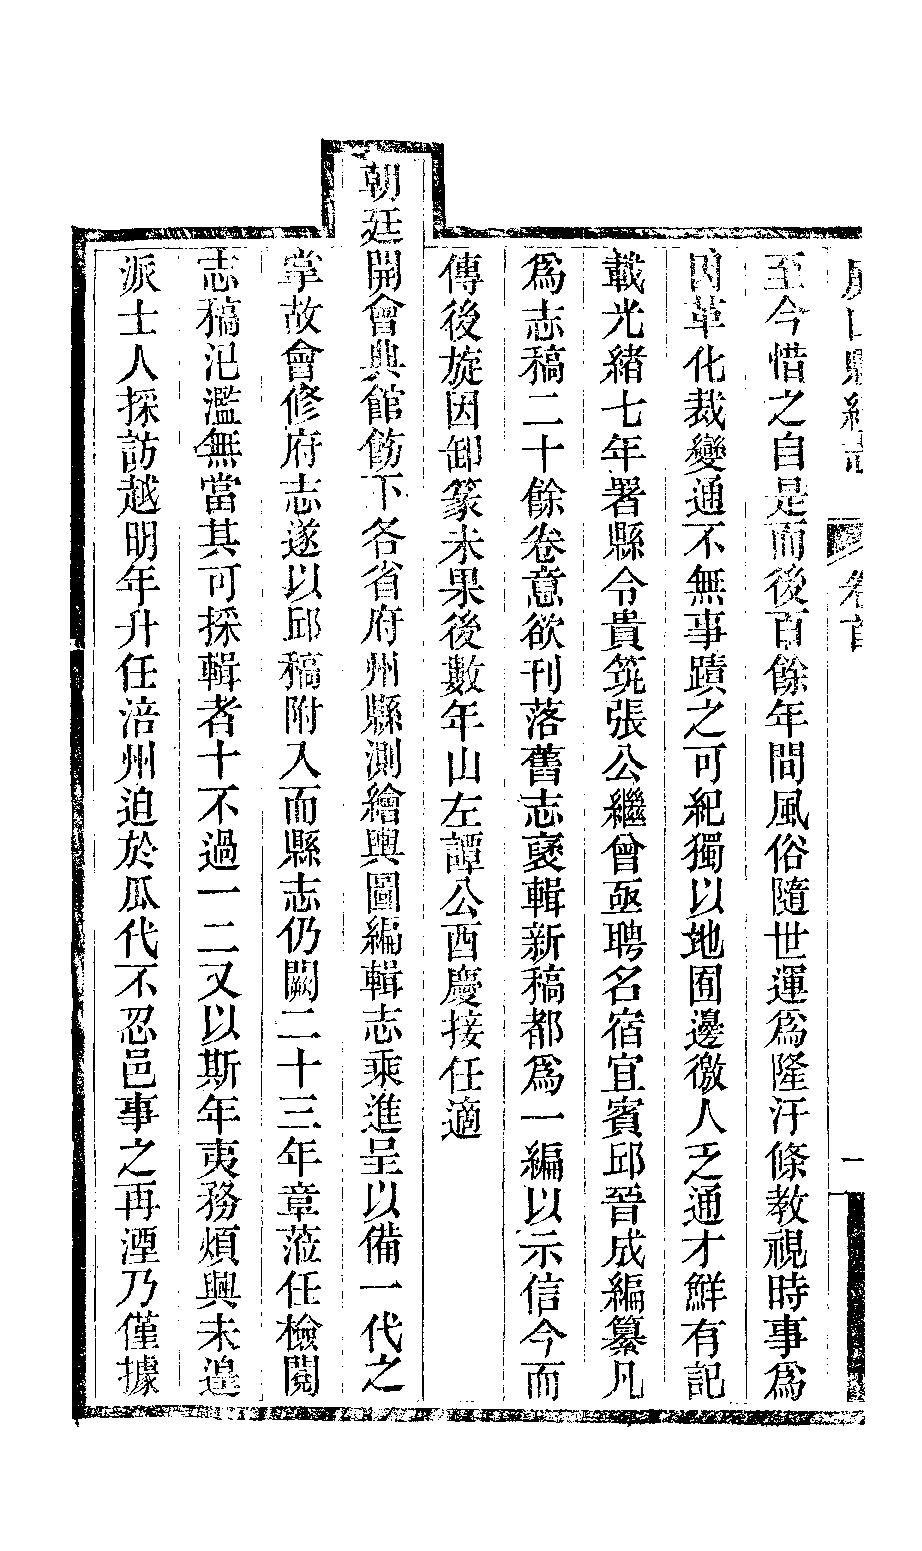 屏山縣續志 卷首 一
至今惜之自是而後百餘年間風俗隨世運爲隆汙條教視時事爲
因革化裁變通不無事蹟之可紀獨以地囿邊徼人乏通才鮮有記
載光緒七年署縣令貴筑張公繼曾亟聘名宿宜賓邱晉成編纂凡
爲志稿二十餘卷意欲刊落舊志裒輯新稿都爲一編以示信今而
傳後旋因卸篆未果後數年山左譚公酉慶接任適
朝廷開會典館飭下各省府州縣測繪輿圖編輯志乘進呈以備一代之
掌故會修府志遂以邱稿附入而縣志仍闕二十三年章蒞任檢閱
志稿氾濫無當其可採輯者十不過一二又以斯年夷務煩興未遑
派士人採訪越明年升任涪州迫於瓜代不忍邑事之再湮乃僅據